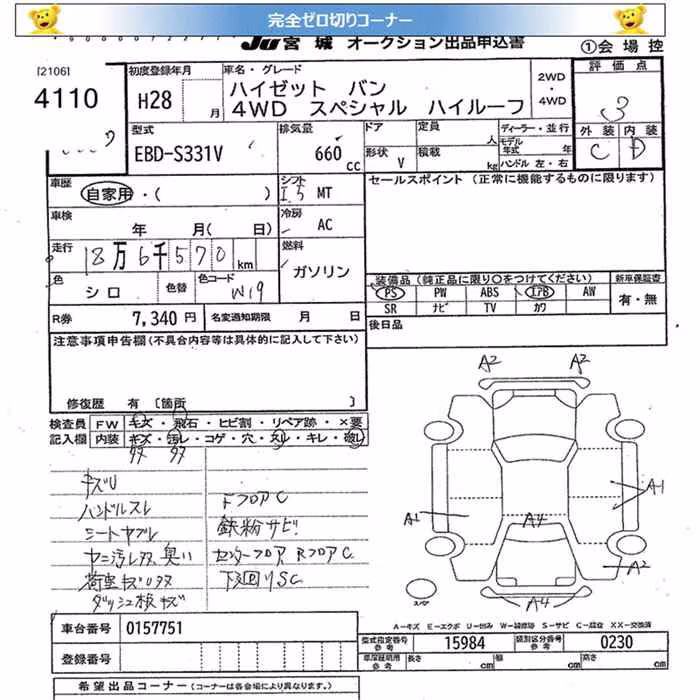 完全ゼロ切りコーナー
JU宮城 オークション出品申込書
①会場控
[2106]
4110
初度登録年月
H28
月
車名・グレード
ハイゼット バン
4WD スペシャル ハイルーフ
2WD
・
4WD
評価点
3
外装 内装
C D
型式
EBD-S331V
排気量
660
cc
ドア
形状 V
定員
人
積載
kg
ディーラー・並行
モデル年式 年
ハンドル 左・右
車歴
自家用・( )
シフト
I.5 MT
セールスポイント (正常に機能するものに限ります)
車検
年 月( 日)
冷房
AC
走行
18万6千570km
燃料
ガソリン
色
シロ
色替
色コード
W19
装備品 (純正品に限り○をつけてください)
PS PW ABS エアB AW
SR ナビ TV カワ
新車保証書
有・無
R券
7,340 円
名変通知期限 月 日
後日品
注意事項申告欄(不具合内容等は具体的に記入して下さい)
修復歴 有 〔箇所 〕
検査員記入欄
FW キズ・飛石・ヒビ割・リペア跡・×要
内装 キズ・汚レ・コゲ・穴・スレ・キレ・破レ
タタ タタ
キズU
ハンドルスレ
シートヤブレ
ヤニ汚レタタ、臭い
荷室キズUタタ
ダッシュ板キズ
FフロアC
鉄粉サビ
センターフロア RフロアC
下回りSC
A2 A2
A1
A1
A4
A2
スペア
A4
A-キズ E-エクボ U-凹み W-補修跡 S-サビ C-腐食 XX-交換済
車台番号 0157751
型式指定番号 参考 15984
類別区分番号 参考 0230
登録番号
車庫証明用 参考
長さ cm 幅 cm 高さ cm
希望出品コーナー (コーナーは各会場により異なります。)